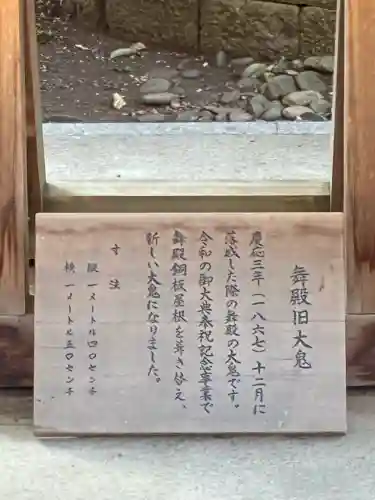 舞殿旧大鬼
慶応三年(一八六七)十二月に
落成した際の舞殿の大鬼です。
令和の御大典奉祝記念事業で
舞殿銅板屋根を葺き替え、
新しい大鬼になりました。
寸法
縦 一メートル四〇センチ
横 一メートル五〇センチ